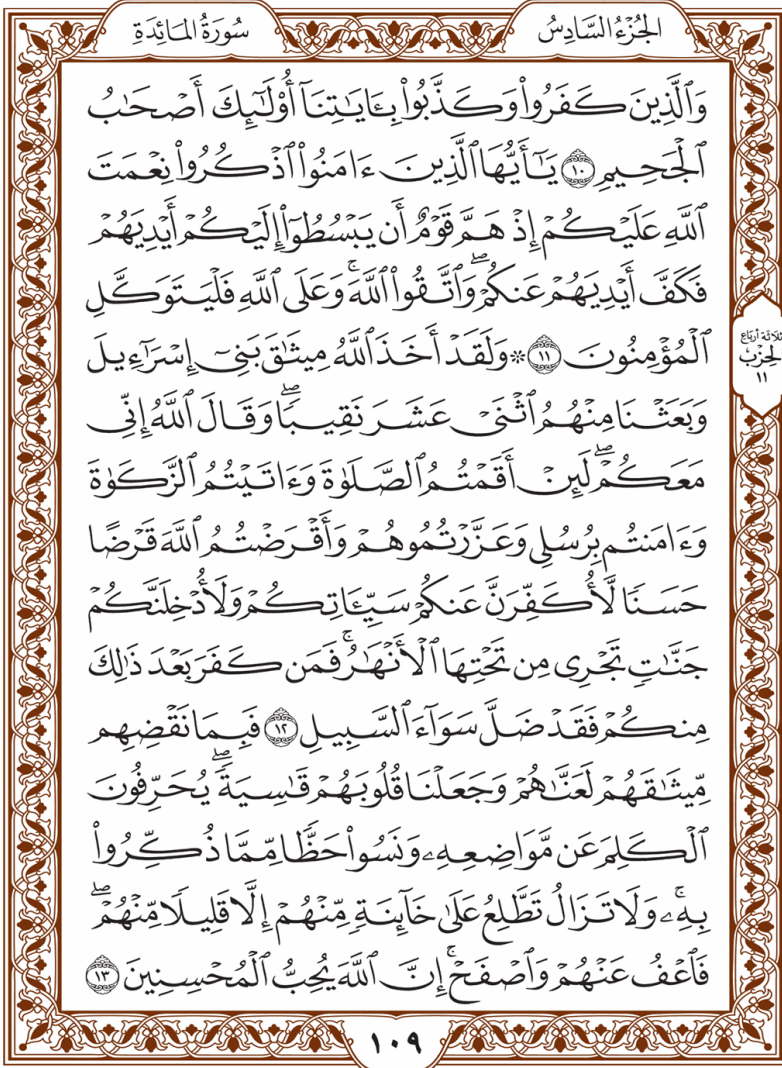 الجُزْءُ السَّادِسُ
سُورَةُ المَائِدَةِ
وَٱلَّذِينَ كَفَرُواْ وَكَذَّبُواْ بِـَٔايَٰتِنَآ أُوْلَٰٓئِكَ أَصْحَٰبُ
ٱلْجَحِيمِ ١٠ يَٰٓأَيُّهَا ٱلَّذِينَ ءَامَنُواْ ٱذْكُرُواْ نِعْمَتَ
ٱللَّهِ عَلَيْكُمْ إِذْ هَمَّ قَوْمٌ أَن يَبْسُطُوٓاْ إِلَيْكُمْ أَيْدِيَهُمْ
فَكَفَّ أَيْدِيَهُمْ عَنكُمْۖ وَٱتَّقُواْ ٱللَّهَۚ وَعَلَى ٱللَّهِ فَلْيَتَوَكَّلِ
ٱلْمُؤْمِنُونَ ١١ ۞ وَلَقَدْ أَخَذَ ٱللَّهُ مِيثَٰقَ بَنِيٓ إِسْرَٰٓءِيلَ
وَبَعَثْنَا مِنْهُمُ ٱثْنَيْ عَشَرَ نَقِيبًاۖ وَقَالَ ٱللَّهُ إِنِّي
مَعَكُمْۖ لَئِنْ أَقَمْتُمُ ٱلصَّلَوٰةَ وَءَاتَيْتُمُ ٱلزَّكَوٰةَ
وَءَامَنتُم بِرُسُلِي وَعَزَّرْتُمُوهُمْ وَأَقْرَضْتُمُ ٱللَّهَ قَرْضًا
حَسَنًا لَّأُكَفِّرَنَّ عَنكُمْ سَيِّـَٔاتِكُمْ وَلَأُدْخِلَنَّكُمْ
جَنَّٰتٍ تَجْرِي مِن تَحْتِهَا ٱلْأَنْهَٰرُۚ فَمَن كَفَرَ بَعْدَ ذَٰلِكَ
مِنكُمْ فَقَدْ ضَلَّ سَوَآءَ ٱلسَّبِيلِ ١٢ فَبِمَا نَقْضِهِم
مِّيثَٰقَهُمْ لَعَنَّٰهُمْ وَجَعَلْنَا قُلُوبَهُمْ قَٰسِيَةًۖ يُحَرِّفُونَ
ٱلْكَلِمَ عَن مَّوَاضِعِهِۦ وَنَسُواْ حَظًّا مِّمَّا ذُكِّرُواْ
بِهِۦۚ وَلَا تَزَالُ تَطَّلِعُ عَلَىٰ خَآئِنَةٍ مِّنْهُمْ إِلَّا قَلِيلًا مِّنْهُمْۖ
فَٱعْفُ عَنْهُمْ وَٱصْفَحْۚ إِنَّ ٱللَّهَ يُحِبُّ ٱلْمُحْسِنِينَ ١٣
ثلاثة أرباع
الحزب
١١
١٠٩